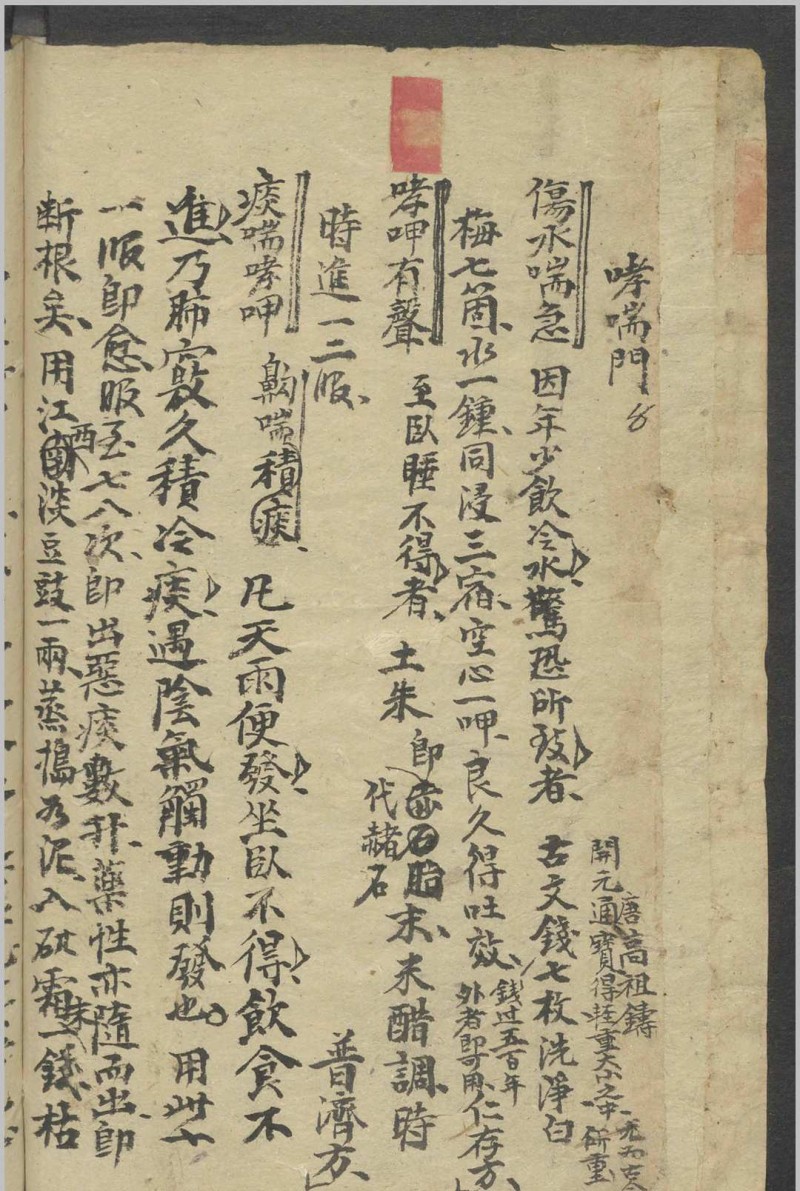 哮喘門
傷水喘急 因年少飲冷水驚恐所致者 古文錢七枚洗淨白
唐高祖鑄
開元通寶得輕重大小之中
梅七箇水一鍾同浸三宿空心一呷良久得吐效 錢过五百年
外者即可用 仁存方
哮呷有聲 至臥睡不得者 土朱 即赤石脂
代赭石
末米醋調時
時進一二服 普濟方
痰喘哮呷 齁喘積痰 凡天雨便發坐臥不得飲食不
進乃肺竅久積冷痰遇陰氣觸動則發也 用此
一服即愈服至七八次即出惡痰數升藥性亦隨而出即
断根矣 用江西淡豆豉一兩蒸搗为泥入砒霜末一錢枯